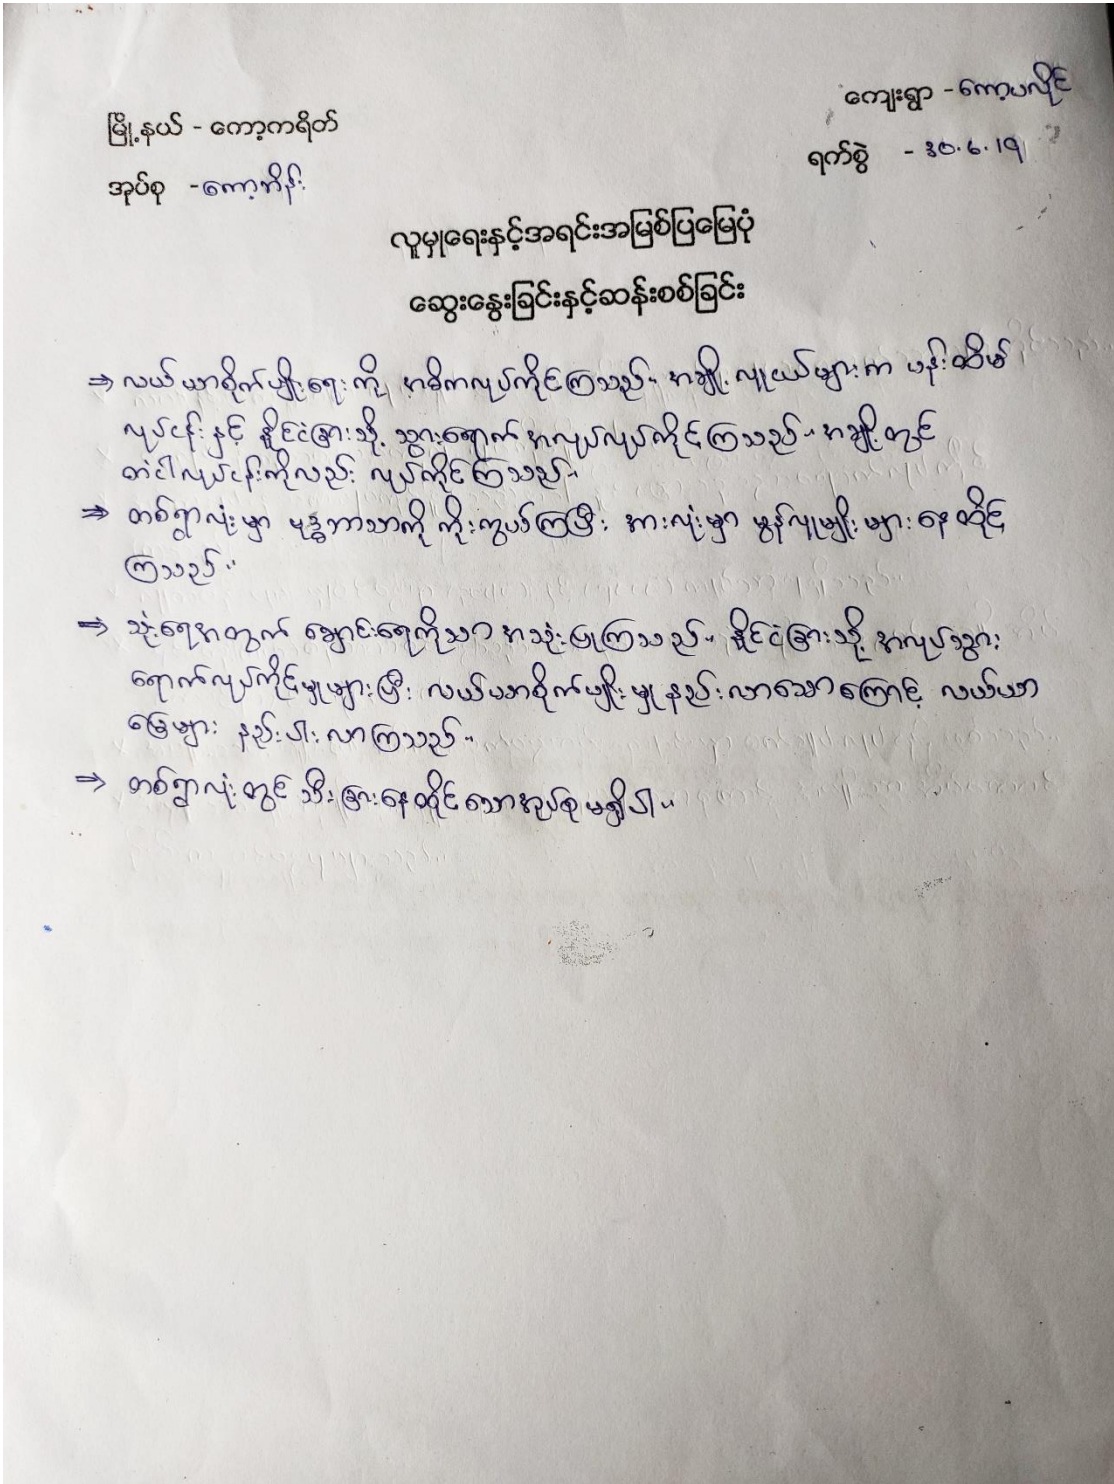 ကျေးရွာ - ကော့ပလိုင်
မြို့နယ် - ကော့ကရိတ်
ရက်စွဲ - ၃၀.၆.၁၅
အုပ်စု - ကော့ဘိန်း
လူမှုရေးနှင့်အရင်းအမြစ်ပြမြေပုံ
ဆွေးနွေးခြင်းနှင့်ဆန်းစစ်ခြင်း
⇒ လယ်ယာစိုက်ပျိုးရေးကို အဓိကလုပ်ကိုင်ကြသည်။ အချို့လူငယ်များက ပန်းထိမ်
လုပ်ငန်းနှင့် နိုင်ငံခြားသို့ သွားရောက်အလုပ်လုပ်ကိုင်ကြသည်။ အချို့တွင်
တံငါလုပ်ငန်းကိုလည်း လုပ်ကိုင်ကြသည်။
⇒ တစ်ရွာလုံးမှာ ဗုဒ္ဓဘာသာကို ကိုးကွယ်ကြပြီး အားလုံးမှာ မွန်လူမျိုးများ နေထိုင်
ကြသည်။
⇒ သုံးရေအတွက် ချောင်းရေကိုသာ အသုံးပြုကြသည်။ နိုင်ငံခြားသို့ အလုပ်သွား
ရောက်လုပ်ကိုင်မှုများပြီး လယ်ယာစိုက်ပျိုးမှု နည်းလာသောကြောင့် လယ်ယာ
မြေများ နည်းပါးလာကြသည်။
⇒ တစ်ရွာလုံးတွင် သီးခြားနေထိုင်သောအုပ်စု မရှိပါ။